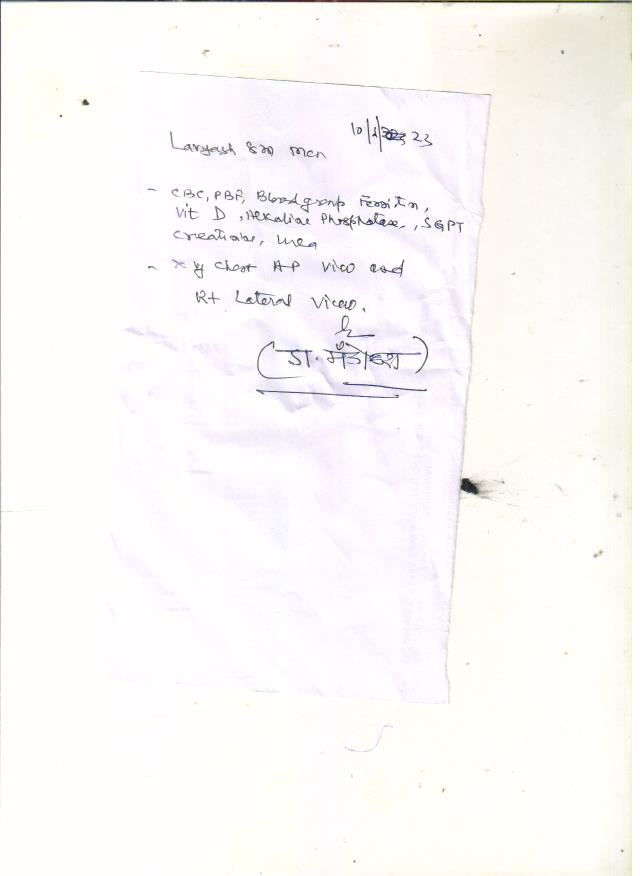 10/1/ 23
Lavyash
- CBC, PBF, Blood group Ferritin,
Vit D, Alkaline Phosphatase, , SGPT
Creatinine, Urea
- X y Chest AP View and
Rt Lateral View.
(डा.